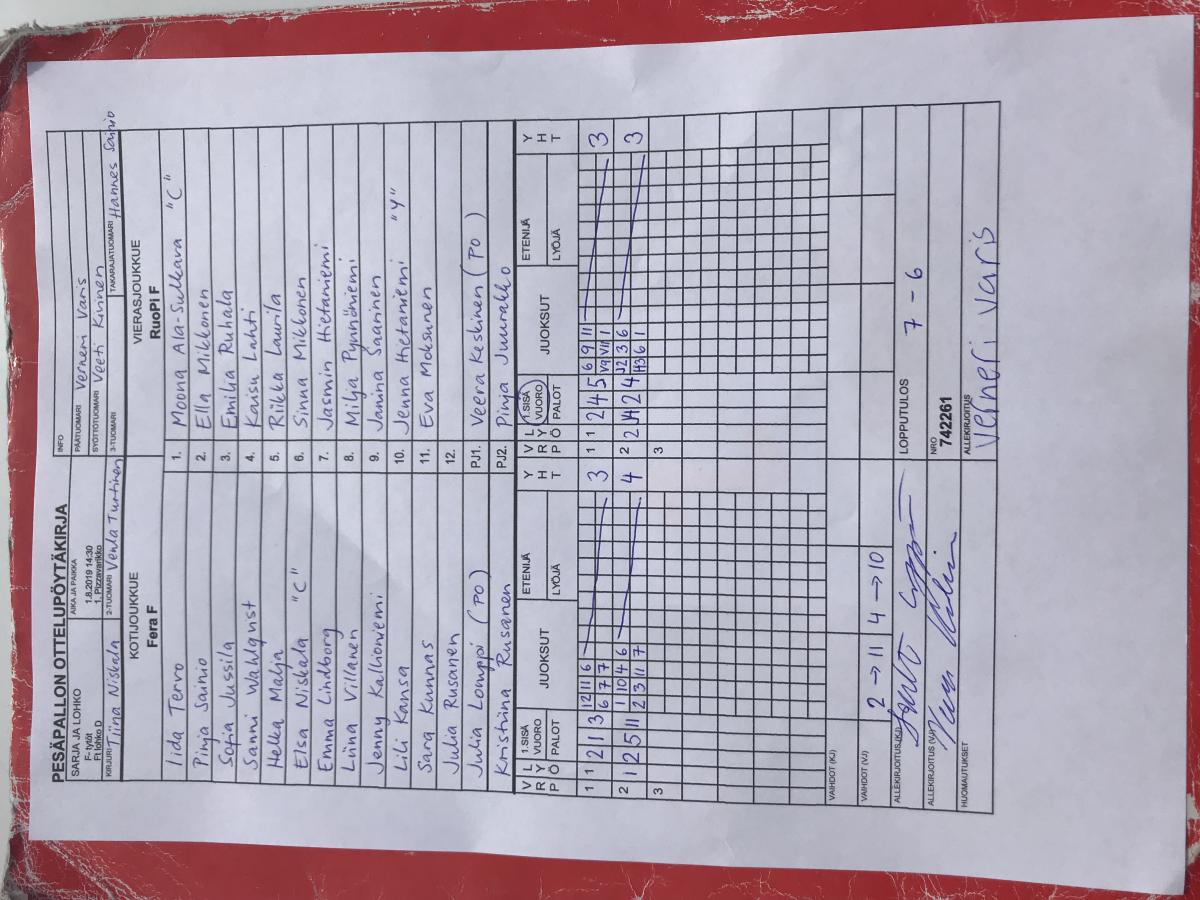 PESÄPALLON OTTELUPÖYTÄKIRJA
SARJA JA LOHKO
F- tytöt
F1 lohko D
AIKA JA PAIKKA
1.8.2019 14:30
1. Pizzavarikko
INFO
PÄÄTUOMARI Verneri Varis
SYÖTTÖTUOMARI Veeti Kivinen
KIRJURI Tiina Niskala 2-TUOMARI Venla Turtinen 3-TUOMARI TAKARAJATUOMARI Hannes Sainio
KOTIJOUKKUE VIERASJOUKKUE
Fera F RuoPi F
Iida Tervo 1. Moona Ala-Sulkava "C"
Pinja Sainio 2. Ella Mikkonen
Sofia Jussila 3. Emilia Ruhala
Sanni Wahlqvist 4. Kaisu Lahti
Helka Malja 5. Riikka Laurila
Elsa Niskala "C" 6. Sinna Mikkonen
Emma Lindborg 7. Jasmin Hietaniemi
Liina Villanen 8. Milja Pynnöniemi
Jenny Kallioniemi 9. Janina Saarinen
Lili Kansa 10. Jenna Hietaniemi "Y"
Sara Kunnas 11. Eva Moksunen
Julia Rusanen 12.
Julia Lomppi (PO) PJ1. Veera Keskinen (PO)
Kristiina Rusanen PJ2. Pinja Juurakko
V R P L Y Ö 1.SISÄ VUORO PALOT JUOKSUT ETENIJÄ LYÖJÄ Y H T V R P L Y Ö 1.SISÄ VUORO PALOT JUOKSUT ETENIJÄ LYÖJÄ Y H T
1 1 2 1 3 12 11 6 3 1 1 2 4 5 6 9 11 3
6 7 7 V9 VII 1
2 1 2 5 11 1 10 4 6 4 2 2 J4 2 4 J2 3 6 3
2 3 11 7 H3 6 1
3 3
VAIHDOT (KJ)
VAIHDOT (VJ) 2 → 11 4 → 10
ALLEKIRJOITUS (KJ) LOPPUTULOS 7 - 6
ALLEKIRJOITUS (VJ) NRO 742261
HUOMAUTUKSET ALLEKIRJOITUS Verneri Varis